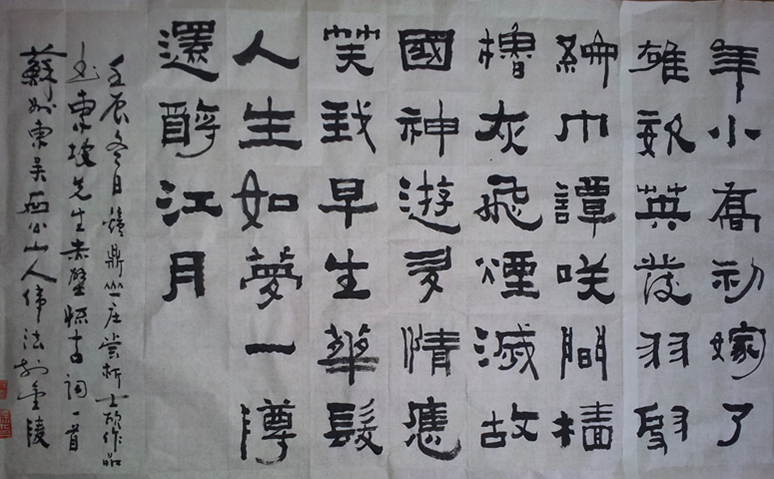 年小喬初嫁了
雄姿英發羽扇
綸巾譚咲間檣
櫓灰飛煙滅故
國神遊多情應
笑我早生華髮
人生如夢一樽
還酹江月
壬辰冬日鼎山庄赏析士作品
书東坡先生赤壁怀古词一首
蘇州東吴西山人伟法於金陵